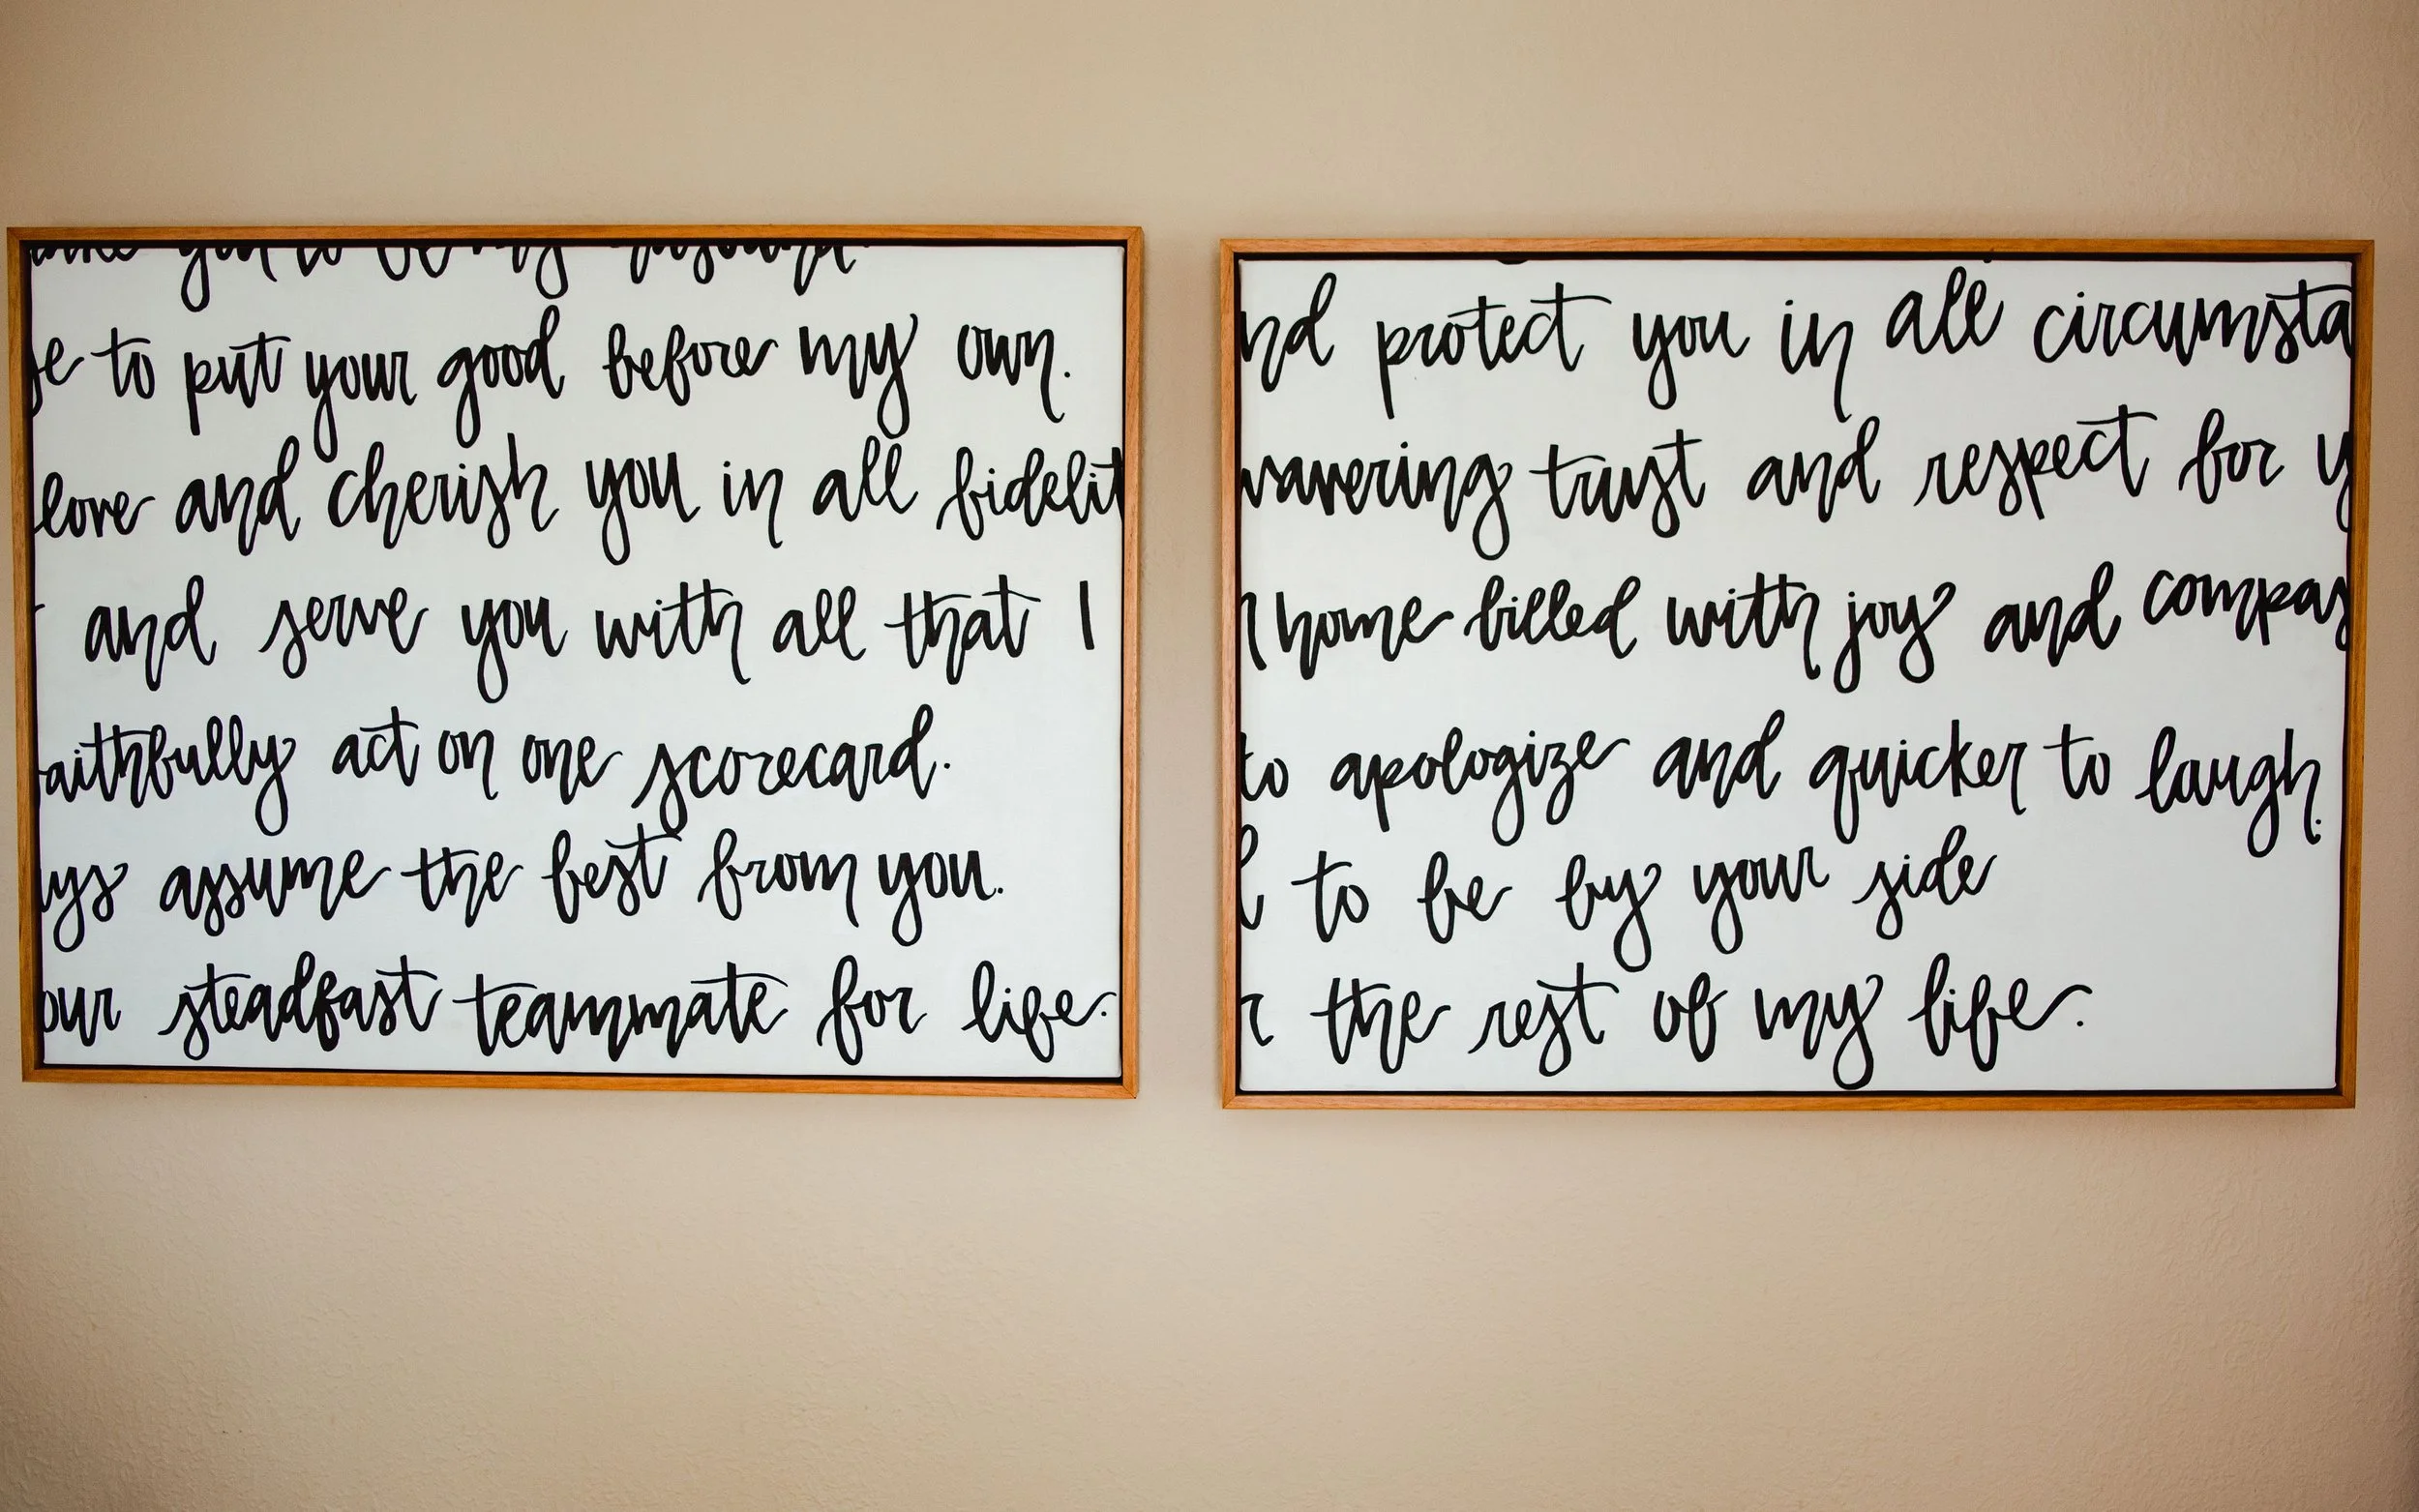 you to be my husband
to put your good before my own.
love and cherish you in all fidelit
and serve you with all that I
aithfully act on one scorecard.
ys assume the best from you.
our steadfast teammate for life.
nd protect you in all circumsta
wavering trust and respect for y
home filled with joy and compas
to apologize and quicker to laugh.
l to be by your side
r the rest of my life.